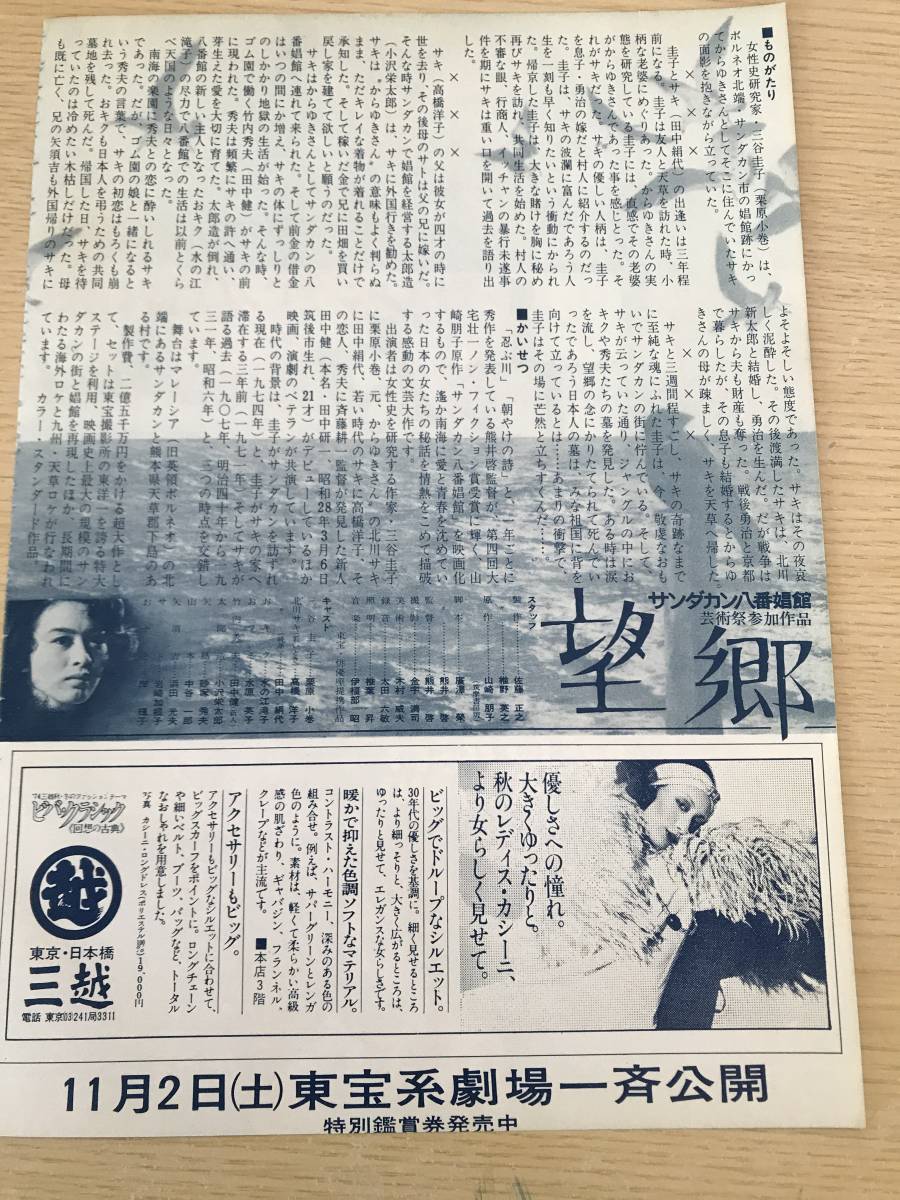 ■ものがたり
女性史研究家・三谷圭子（栗原小巻）は、
ボルネオ北端・サンダカン市の娼館跡にかつ
てからゆきさんとしてそこに住んでいたサキ
の面影を抱きながら立っていた。
× × ×
圭子とサキ（田中絹代）の出逢いは三年程
前になる。圭子は友人と天草を訪れた時、小
柄な老婆にめぐりあった。からゆきさんの実
態を研究している圭子には、直感でその老婆
がからゆきさんであった事を感じとった。そ
れがサキだった。サキの優しい人柄は、圭子
を息子・勇治の嫁だと村人に紹介するのだっ
た。圭子は、サキの波瀾に富んだであろう人
生を一刻も早く知りたいという衝動にからけ
れた。帰京した圭子は、大きな賭けを胸に秘め
再びサキを訪れ、共同生活を始めた。村人の
不審な眼、行商人、イッチャンの暴行未遂事
件を期にサキは重い口を開いて過去を語り出
した。
× × ×
サキ（高橋洋子）の父は彼女が四才の時に
世を去り、その後母のサトは父の兄に嫁いだ。
そんな時サンダカンで娼館を経営する太郎造
（小沢栄太郎）は、サキに外国行きを勧めた。
サキは〝からゆきさん〟の意味もよく判らぬ
まま、ただキレイな着物が着れることだけで
承知した。そして稼いだ金で兄に田畑を買い
戻し家を建てて欲しいと願うのだった。
サキはからゆきさんとしてサンダカンの八
番娼館へ連れて来られた。そして前金の借金
はいつの間にか増え、サキの体にずっしりと
のしかかり地獄の生活が始った。そんな時、
ゴム園で働く竹内秀夫（田中健）がサキの前
に現われた。秀夫は頻繁にサキの許へ通い、
芽生えた愛を大切に育てた。太郎造が倒れ、
八番館の新しい主人となったおキク（水の江
滝子）の尽力で八番館での生活は以前とくら
べ天国のような日々となった。
南海の楽園に秀夫との恋に酔いしれるサキ
であった。だが、ゴム園の娘と一緒になると
いう秀夫の言葉で、サキの初恋はもろくも崩
れ去った。おキクも日本人を弔うための共同
墓地を残して死んだ。帰国した日、サキを待
っていたのは冷めたい木枯しだけだった。母
も既に亡く、兄の矢須吉も外国帰りのサキに
よそよそしい態度であった。サキはその夜哀
しく泥酔した。その後渡満したサキは、北川
新太郎と結婚し、勇治を生んだ。だが戦争は
サキから夫も財産も奪った。戦後勇治と京都
で暮らしたが、その息子も結婚するとからゆ
きさんの母が疎ましく、サキを天草へ帰した
× × ×
サキと三週間程すごし、サキの奇跡なまで
に至純な魂にふれた圭子は、今、敬虔なおも
いでサンダカンの街に佇んでいる。そして、
サキが云っていた通り、ジャングルの中にお
キクや秀夫たちの墓を発見した。ある時は涙
を流し、望郷の念にかりたてられて死んでい
ったであろう日本人の墓は、みな祖国に背を
向けて立っているとは……あまりの衝撃で、
圭子はその場に茫然と立ちすくんだ……。
■かいせつ
「忍ぶ川」「朝やけの詩」と、一年ごとに
秀作を発表している熊井啓監督が、第四回大
宅壮一ノン・フィクション賞受賞に輝く、山
崎朋子原作「サンダカン八番娼館」を映画化
するもので、遙か南海に愛と青春を沈めてい
った日本の女たちの秘話を情熱をこめて描破
する感動の文芸大作です。
出演者は女性史を研究する作家・三谷圭子
に栗原小巻、元〝からゆきさん〟の北川サキ
に田中絹代、若い時代のサキに高橋洋子、そ
の恋人、秀夫に斉藤耕一監督が発見した新人
田中健（本名・田中研一 昭和28年3月6日
筑後市生れ、21才）がデビューしているほか
映画、演劇のベテランが共演しています。
時代の背景は、圭子がサンダカンを訪ずれ
る現在（一九七四年）と、圭子がサキの家へ
滞在する三年前（一九七一年）そしてサキが
語る過去（一九〇七年、明治四十年から一九三
一年、昭和六年）と、三つの時点を交錯し
ています。
舞台はマレーシア（旧英領ボルネオ）の北
端にあるサンダカンと熊本県天草郡下島のあ
る村です。
製作費、二億五千万円をかける超大作とし
て、セットは東宝撮影所の東洋一を誇る特大
ステージを利用、映画史上最大の規模のサン
ダカンの街と娼館を再現したほか、長期間に
わたる海外ロケと九州・天草ロケが行なわれ
ています。 カラー・スタンダード作品。
サンダカン八番娼館
芸術祭参加作品
望郷
スタッフ
製作 佐藤正之
椎野英之
原作 山崎朋子
（筑摩書房版）
脚本 廣澤榮
熊井啓
監督 熊井啓
撮影 金宇満司
美術 木村威夫
録音 太田六敏
照明 椎葉昇
音楽 伊福部昭
東宝・俳優座提携作品
キャスト
三谷圭子 栗原小巻
高橋洋子
田中絹代
水の江滝子
水原英子
田中健(新人)
太郎造 小沢栄太郎
砂塚秀夫
山本 中谷一郎
浜田光夫
岩崎加根子
優しさへの憧れ。
大きくゆったりと。
秋のレディス・カシーニ、
より女らしく見せて。
ビッグでドループなシルエット。
30年代の優しさを基調に。細く見せるところ
は、より細っそりと、大きく広がるところは、
ゆったりと見せて、エレガンスな女らしさです。
暖かで抑えた色調ソフトなマテリアル。
コントラスト・ハーモニー、深みのある色の
組み合せ。例えば、サバーグリーンとレンガ
色のように。素材は、軽くて柔らかい高級
感の肌ざわり、ギャバジン、フランネル、
クレープなどが主流です。
■本店3階
アクセサリーもビッグ。
アクセサリーもビッグなシルエットに合わせて、
ビッグスカーフをポイントに。ロングチェーン
や細いベルト、ブーツ、バッグなど、トータル
なおしゃれを用意しました。
写真 カシーニ・ロングドレス(ポリエステル混)¥19,000円
'74三越秋・冬のファッションテーマ
ビバ・クラシック
《回想の古典》
越
東京・日本橋
三越
電話 東京(03)241局3311
11月2日(土)東宝系劇場一斉公開
特別鑑賞券発売中